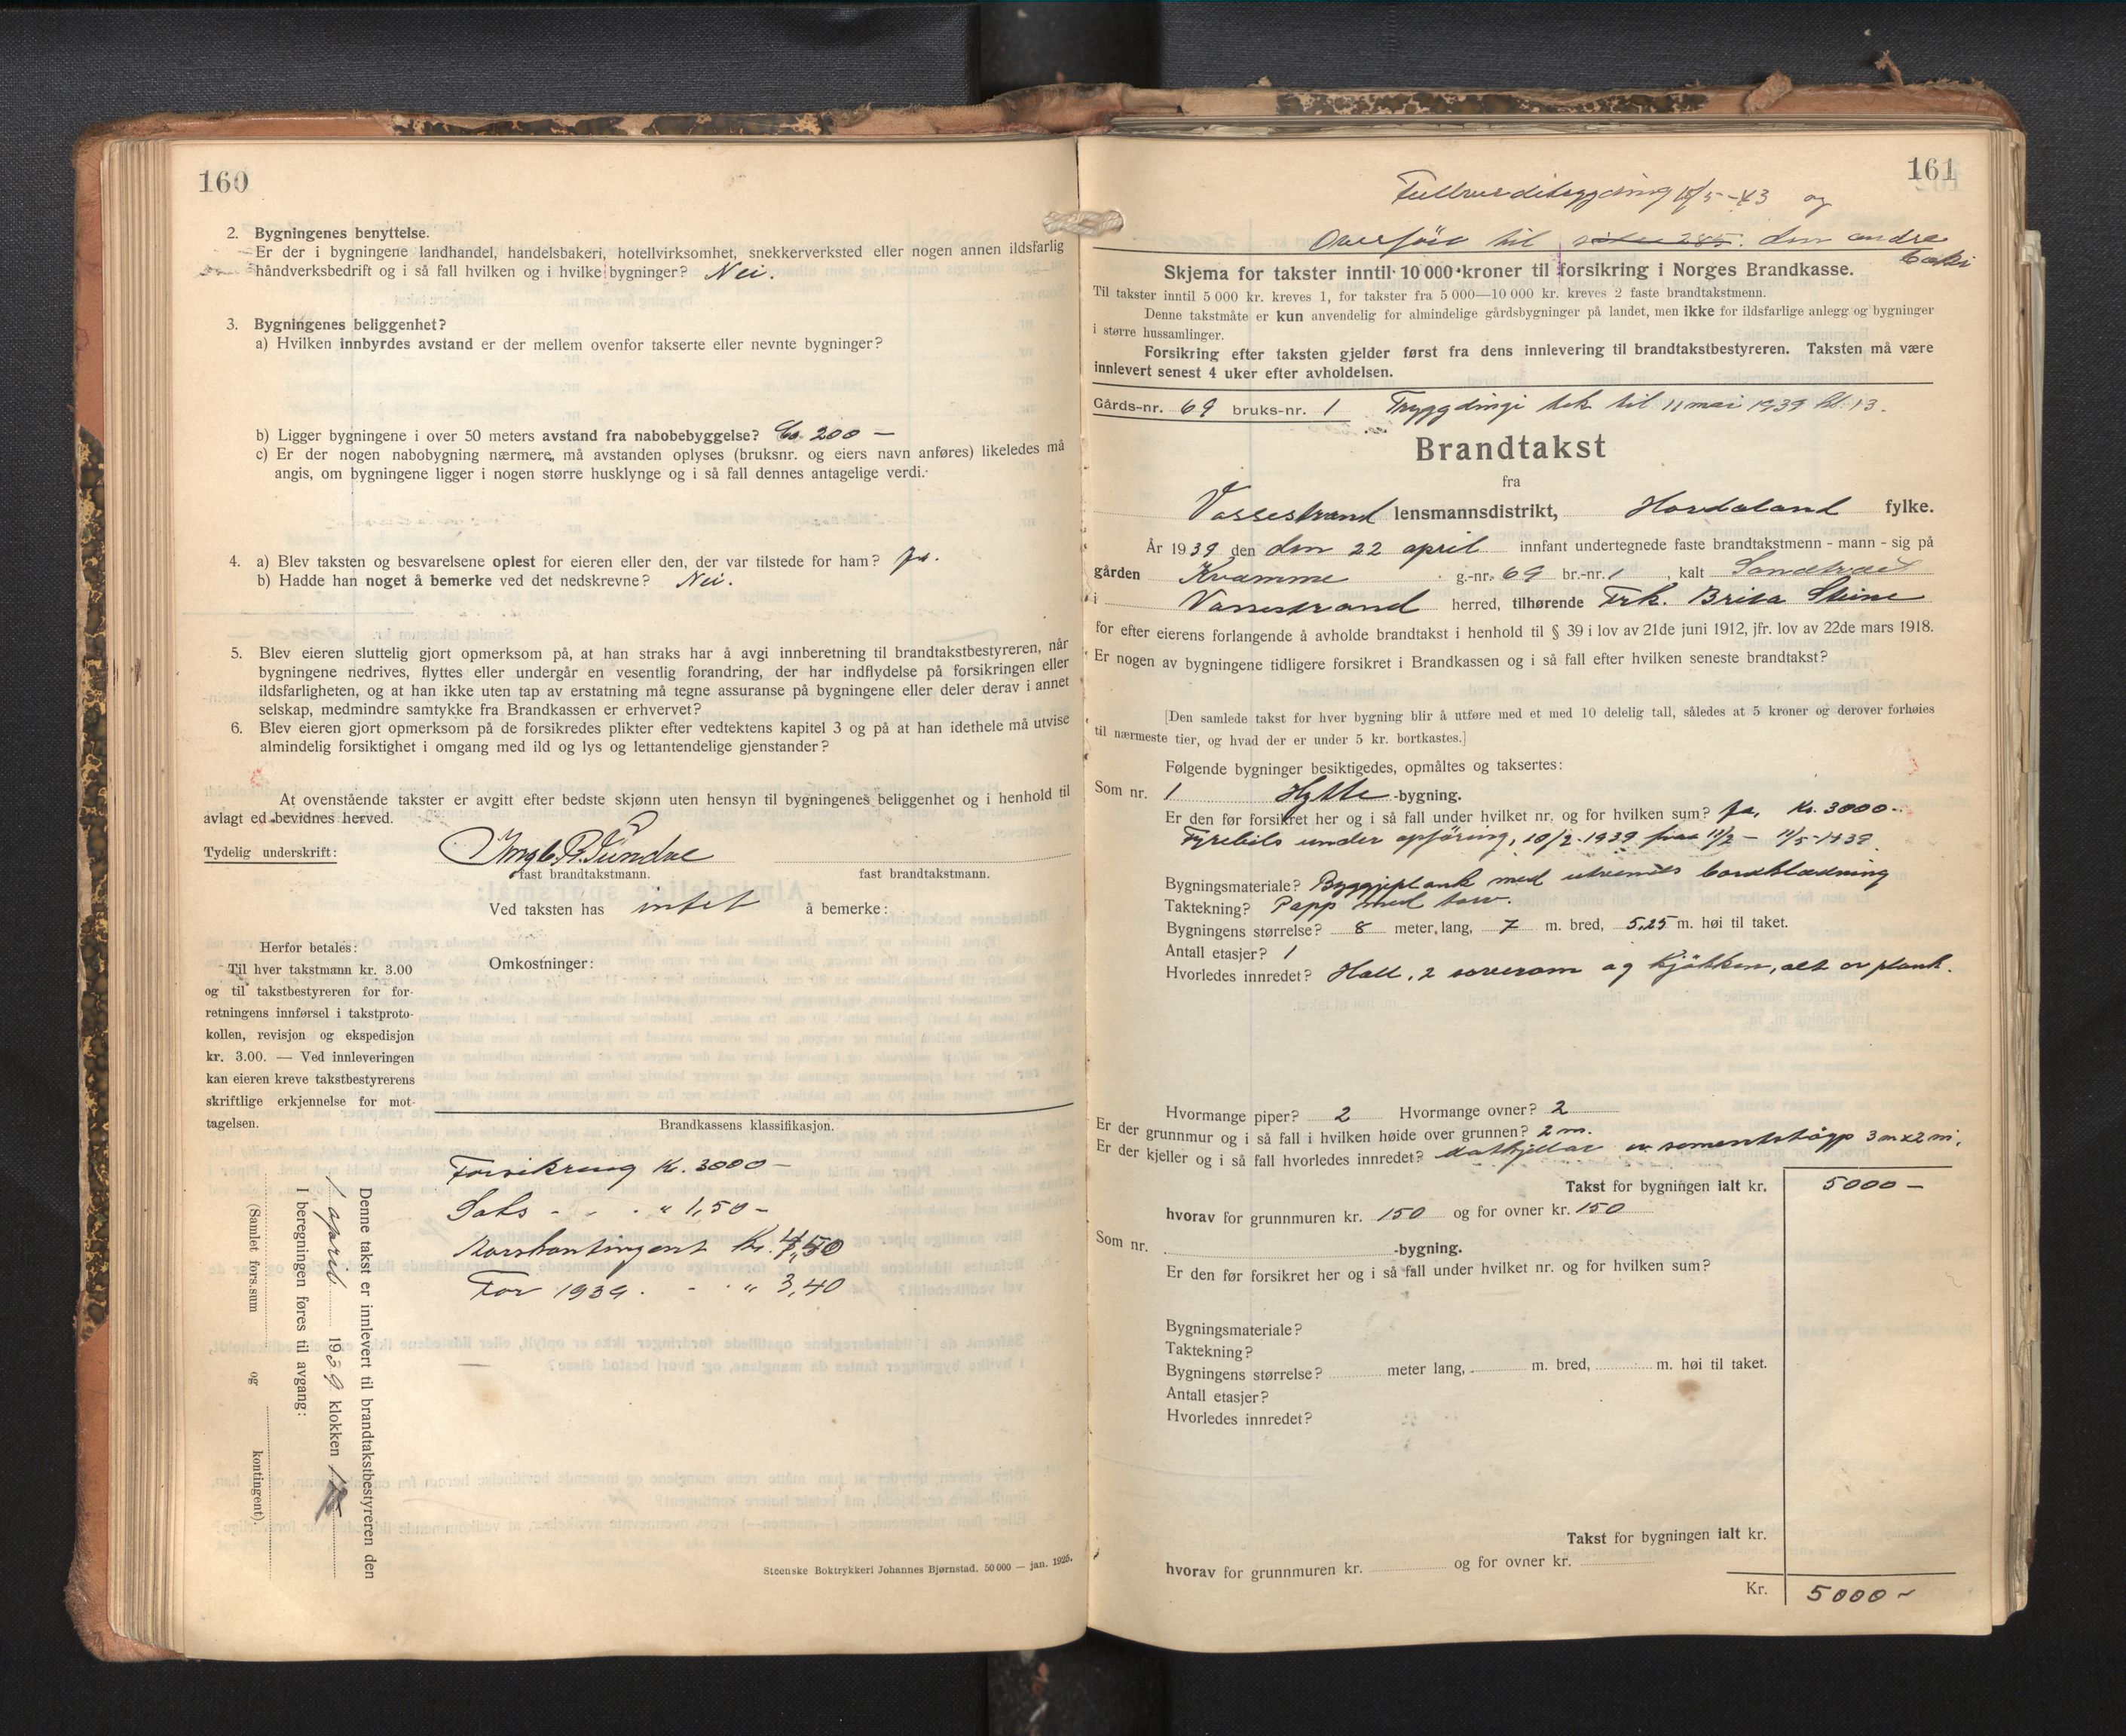 160
2. Bygningenes benyttelse.
Er der i bygningene landhandel, handelsbakeri, hotellvirksomhet, snekkerverksted eller nogen annen ildsfarlig
håndverksbedrift og i så fall hvilken og i hvilke bygninger? Nei.
3. Bygningenes beliggenhet?
a) Hvilken innbyrdes avstand er der mellem ovenfor takserte eller nevnte bygninger?
b) Ligger bygningene i over 50 meters avstand fra nabobebyggelse? Ca. 200 —
c) Er der nogen nabobygning nærmere, må avstanden oplyses (bruksnr. og eiers navn anføres) likeledes må
angis, om bygningene ligger i nogen større husklynge og i så fall dennes antagelige verdi.
4. a) Blev taksten og besvarelsene oplest for eieren eller den, der var tilstede for ham? ja.
b) Hadde han noget å bemerke ved det nedskrevne? Nei.
5. Blev eieren sluttelig gjort opmerksom på, at han straks har å avgi innberetning til brandtakstbestyreren, når
bygningene nedrives, flyttes eller undergår en vesentlig forandring, der har indflydelse på forsikringen eller
ildsfarligheten, og at han ikke uten tap av erstatning må tegne assuranse på bygningene eller deler derav i annet
selskap, medmindre samtykke fra Brandkassen er erhvervet?
6. Blev eieren gjort opmerksom på de forsikredes plikter efter vedtektens kapitel 3 og på at han idethele må utvise
almindelig forsiktighet i omgang med ild og lys og lettantendelige gjenstander?
At ovenstående takster er avgitt efter bedste skjønn uten hensyn til bygningenes beliggenhet og i henhold til
avlagt ed bevidnes herved.
Tydelig underskrift:
fast brandtakstmann. fast brandtakstmann.
Ved taksten has intet å bemerke:
Omkostninger:
Herfor betales:
Til hver takstmann kr. 3.00
og til takstbestyreren for for-
retningens innførsel i takstproto-
kollen, revisjon og ekspedisjon
kr. 3.00. — Ved innleveringen
kan eieren kreve takstbestyrerens
skriftlige erkjennelse for mot-
tagelsen.
Brandkassens klassifikasjon.
Forsikring Kr. 3000 —
Sats - - . " 1,50 -
Årskontingent Kr. 4,50
For 1939. - . " 3,40
Denne takst er innlevert til brandtakstbestyreren den
1 april 1939 klokken
I beregningen føres til avgang:
(Samlet fors.sum og kontingent).
Steenske Boktrykkeri Johannes Bjørnstad. 50 000 — jan. 1925.
161
Fullverditrygding 15/5-43 og
Overføst til side 285. den andre
boki
Skjema for takster inntil 10 000 kroner til forsikring i Norges Brandkasse.
Til takster inntil 5 000 kr. kreves 1, for takster fra 5 000—10 000 kr. kreves 2 faste brandtakstmenn.
Denne takstmåte er kun anvendelig for almindelige gårdsbygninger på landet, men ikke for ildsfarlige anlegg og bygninger
i større hussamlinger.
Forsikring efter taksten gjelder først fra dens innlevering til brandtakstbestyreren. Taksten må være
innlevert senest 4 uker efter avholdelsen.
Gårds-nr. 69 bruks-nr. 1 Tryggdingi tek til 11 mai 1939 kl. 13.
Brandtakst
fra
Vossestrand lensmannsdistrikt, Hordaland fylke.
År 1939 den den 22 april innfant undertegnede faste brandtakstmenn - mann - sig på
gården Kvamme g.-nr. 69 br.-nr. 1, kalt
i Vossestrand herred, tilhørende Frk. Brita Steine
for efter eierens forlangende å avholde brandtakst i henhold til § 39 i lov av 21de juni 1912, jfr. lov av 22de mars 1918.
Er nogen av bygningene tidligere forsikret i Brandkassen og i så fall efter hvilken seneste brandtakst?
[Den samlede takst for hver bygning blir å utføre med et med 10 delelig tall, således at 5 kroner og derover forhøies
til nærmeste tier, og hvad der er under 5 kr. bortkastes.]
Følgende bygninger besiktigedes, opmåltes og taksertes:
Som nr. 1 Hytte -bygning.
Er den før forsikret her og i så fall under hvilket nr. og for hvilken sum? ja, Kr. 3000-
Fyrebils under opføring, 10/2-1939 fraa 11/2 — 11/5-1939
Bygningsmateriale? Byggjeplank med utvendes bordklædning
Taktekning? Papp med torv.
Bygningens størrelse? 8 meter lang, 7 m. bred, 5,25 m. høi til taket.
Antall etasjer? 1
Hvorledes innredet? Hall, 2 soverom og kjøkken, alt av plank.
Hvormange piper? 2 Hvormange ovner? 2
Er der grunnmur og i så fall i hvilken høide over grunnen? 2 m.
Er der kjeller og i så fall hvorledes innredet? matkjellar av sementstøyp 3 m x 2 m.
Takst for bygningen ialt kr. 5000 —
hvorav for grunnmuren kr. 150 og for ovner kr. 150
Som nr. -bygning.
Er den før forsikret her og i så fall under hvilket nr. og for hvilken sum?
Bygningsmateriale?
Taktekning?
Bygningens størrelse? meter lang, m. bred, m. høi til taket.
Antall etasjer?
Hvorledes innredet?
Takst for bygningen ialt kr.
hvorav for grunnmuren kr. og for ovner kr.
Kr. 5000 —